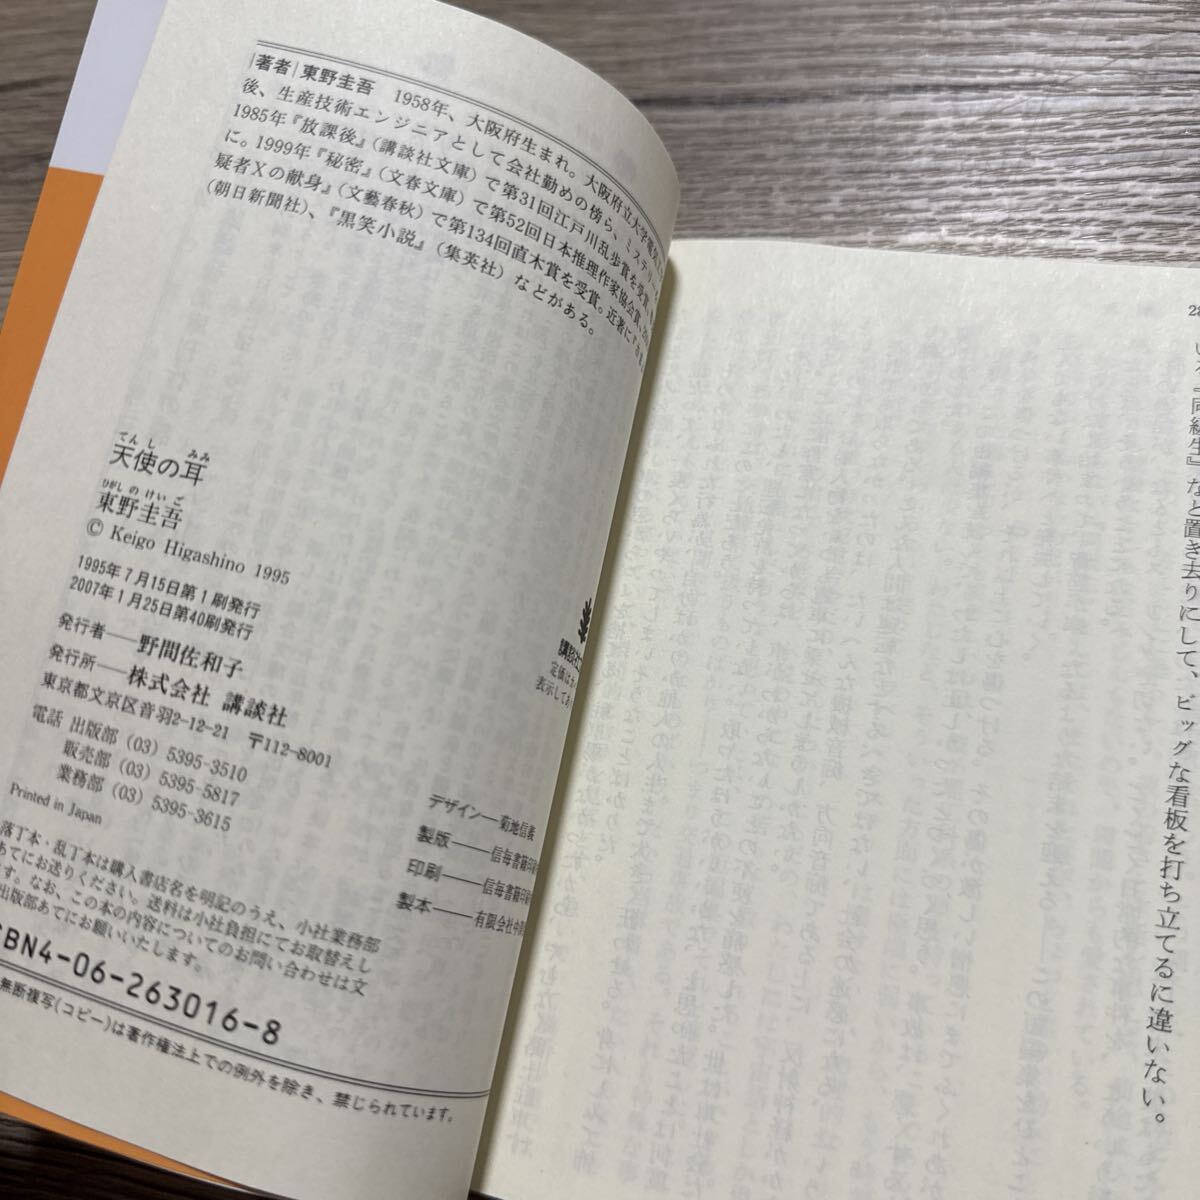 著者 東野圭吾 1958年、大阪府生まれ。大阪府立大学電気
後、生産技術エンジニアとして会社勤めの傍ら、ミステリー
1985年『放課後』(講談社文庫)で第31回江戸川乱歩賞を受賞、
に。1999年『秘密』(文春文庫)で第52回日本推理作家協会賞、
疑者Xの献身』(文藝春秋)で第134回直木賞を受賞。近著に『さま
(朝日新聞社)、『黒笑小説』(集英社)などがある。
てんし みみ
天使の耳
ひがしの けい ご
東野圭吾
© Keigo Higashino 1995
1995年7月15日第1刷発行
2007年1月25日第40刷発行
発行者――野間佐和子
発行所――株式会社 講談社
東京都文京区音羽2-12-21 〒112-8001
電話 出版部 (03) 5395-3510
販売部 (03) 5395-5817
業務部 (03) 5395-3615
Printed in Japan
講談社
定価は
表示してあ
デザイン―菊地信義
製版――信毎書籍印
印刷――信毎書籍印
製本――有限会社中
落丁本・乱丁本は購入書店名を明記のうえ、小社業務部
あてにお送りください。送料は小社負担にてお取替えし
ます。なお、この本の内容についてのお問い合わせは文
出版部あてにお願いいたします。
SBN4-06-263016-8
無断複写(コピー)は著作権法上での例外を除き、禁じられています。
28
同級生』など置き去りにして、ビッグな看板を打ち立てるに違いない。